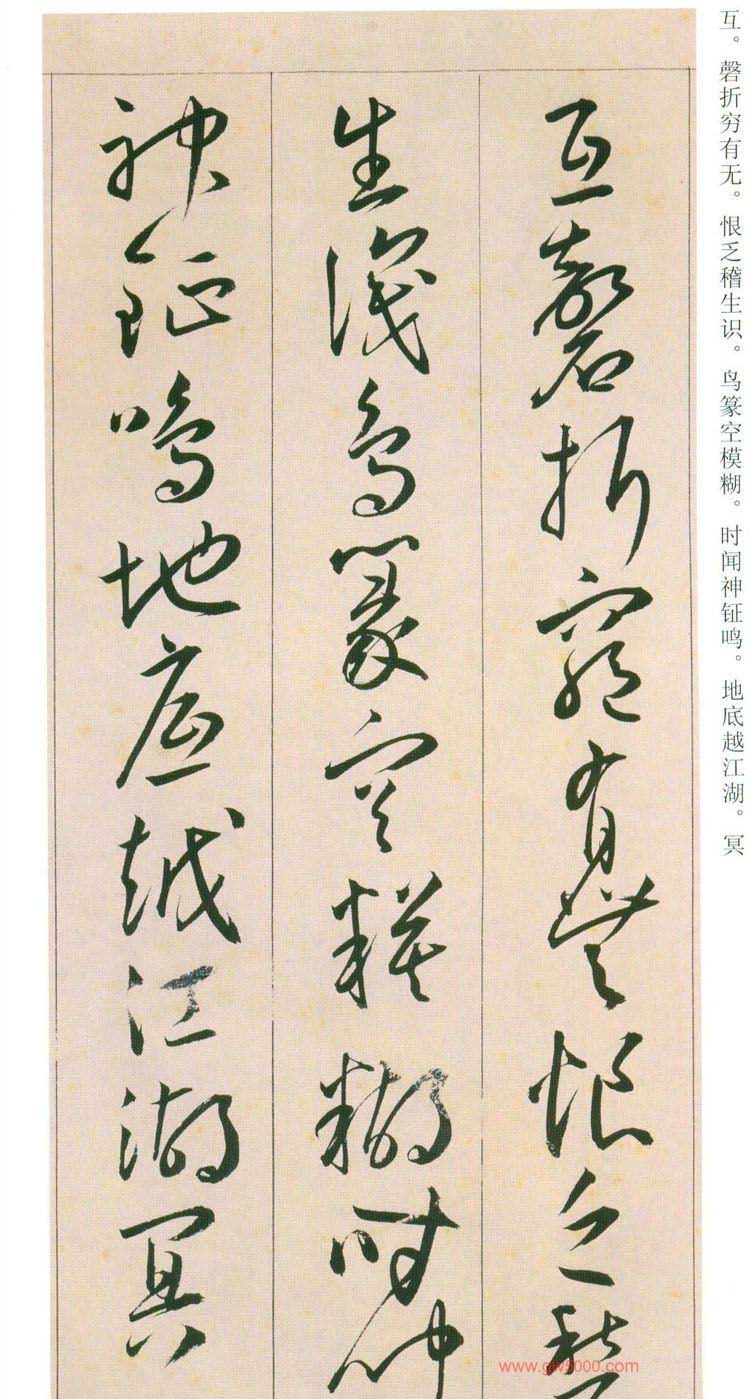 互。磬折穷有无。恨乏稽生识。鸟篆空模糊。时闻神钲鸣。地底越江湖。冥
互磬折穷有無恨乏嵇
生識鳥篆空糢糊时闻
神鉦鳴地底越江湖冥
www.gw5000.com